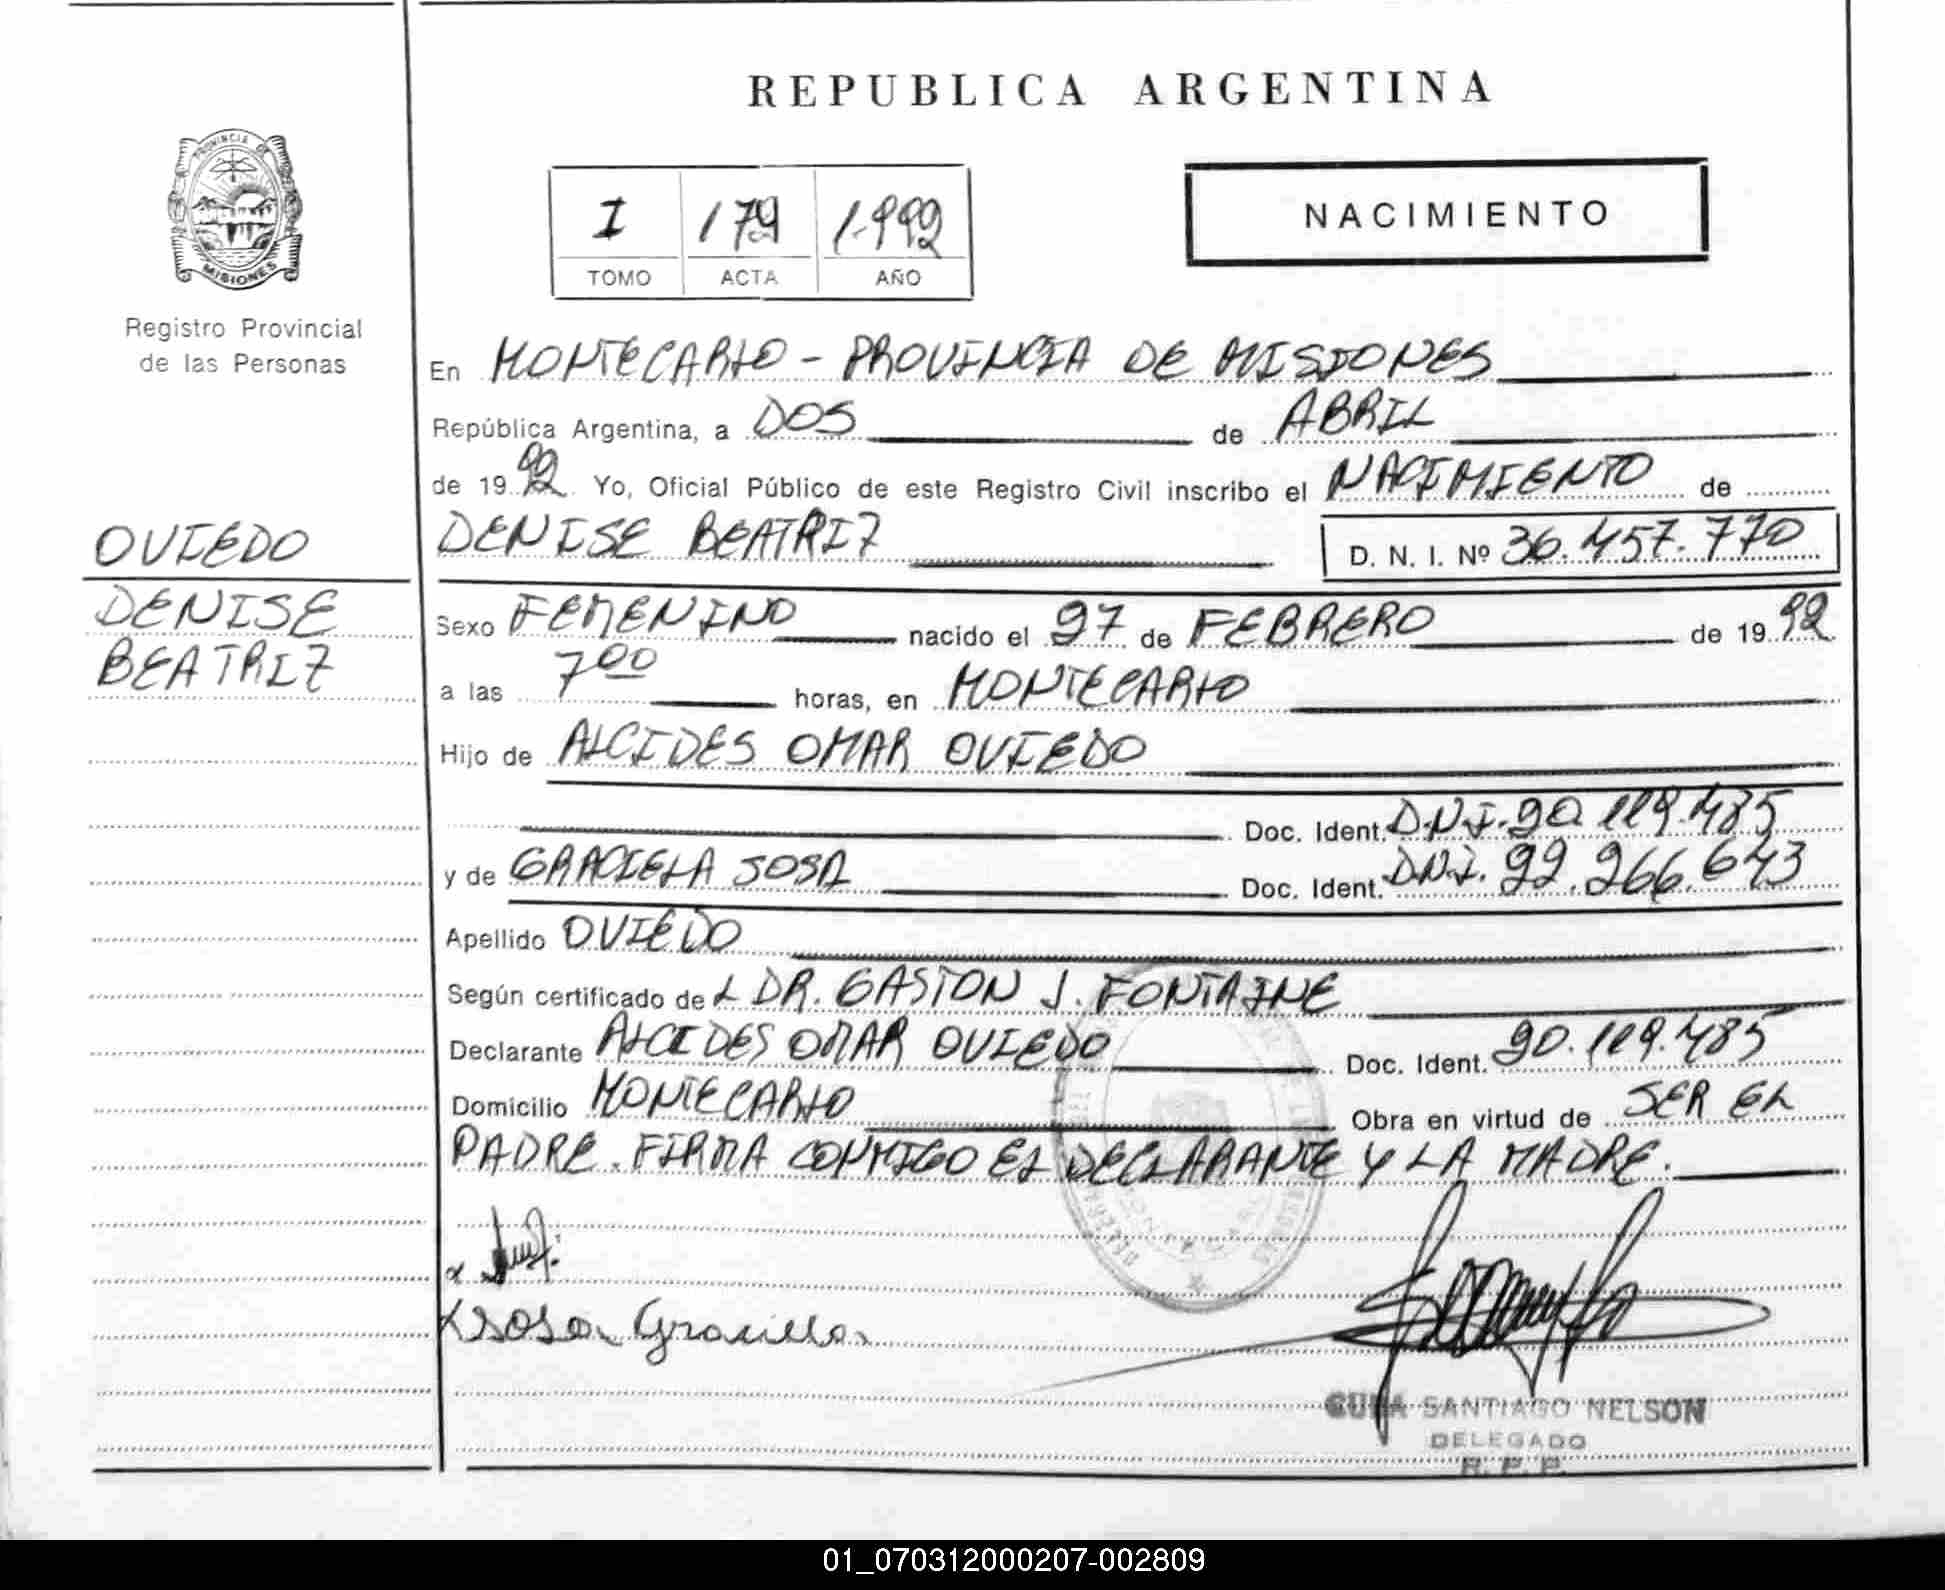 REPUBLICA ARGENTINA
PROVINCIA DE
MISIONES
Registro Provincial
de las Personas
I 179 1.992
TOMO ACTA AÑO
NACIMIENTO
En MONTECARLO - PROVINCIA DE MISIONES
República Argentina, a DOS de ABRIL
de 19 92 Yo, Oficial Público de este Registro Civil inscribo el NACIMIENTO de
OVIEDO
DENISE
BEATRIZ
DENISE BEATRIZ D. N. I. Nº 36.457.770
Sexo FEMENINO nacido el 27 de FEBRERO de 19 92
a las 7 00 horas, en MONTECARLO
Hijo de ALCIDES OMAR OVIEDO
Doc. Ident. D.N.I. 20.119.485
y de GRACIELA SOSA Doc. Ident. D.N.I. 22.266.643
Apellido OVIEDO
Según certificado de L DR. GASTON J. FONTAINE
Declarante ALCIDES OMAR OVIEDO Doc. Ident. 20.119.485
Domicilio MONTECARLO Obra en virtud de SER EL
PADRE. FIRMA CONMIGO EL DECLARANTE Y LA MADRE.
Sosa Graciela
SANTIAGO NELSON
DELEGADO
R. P. P.
01_070312000207-002809